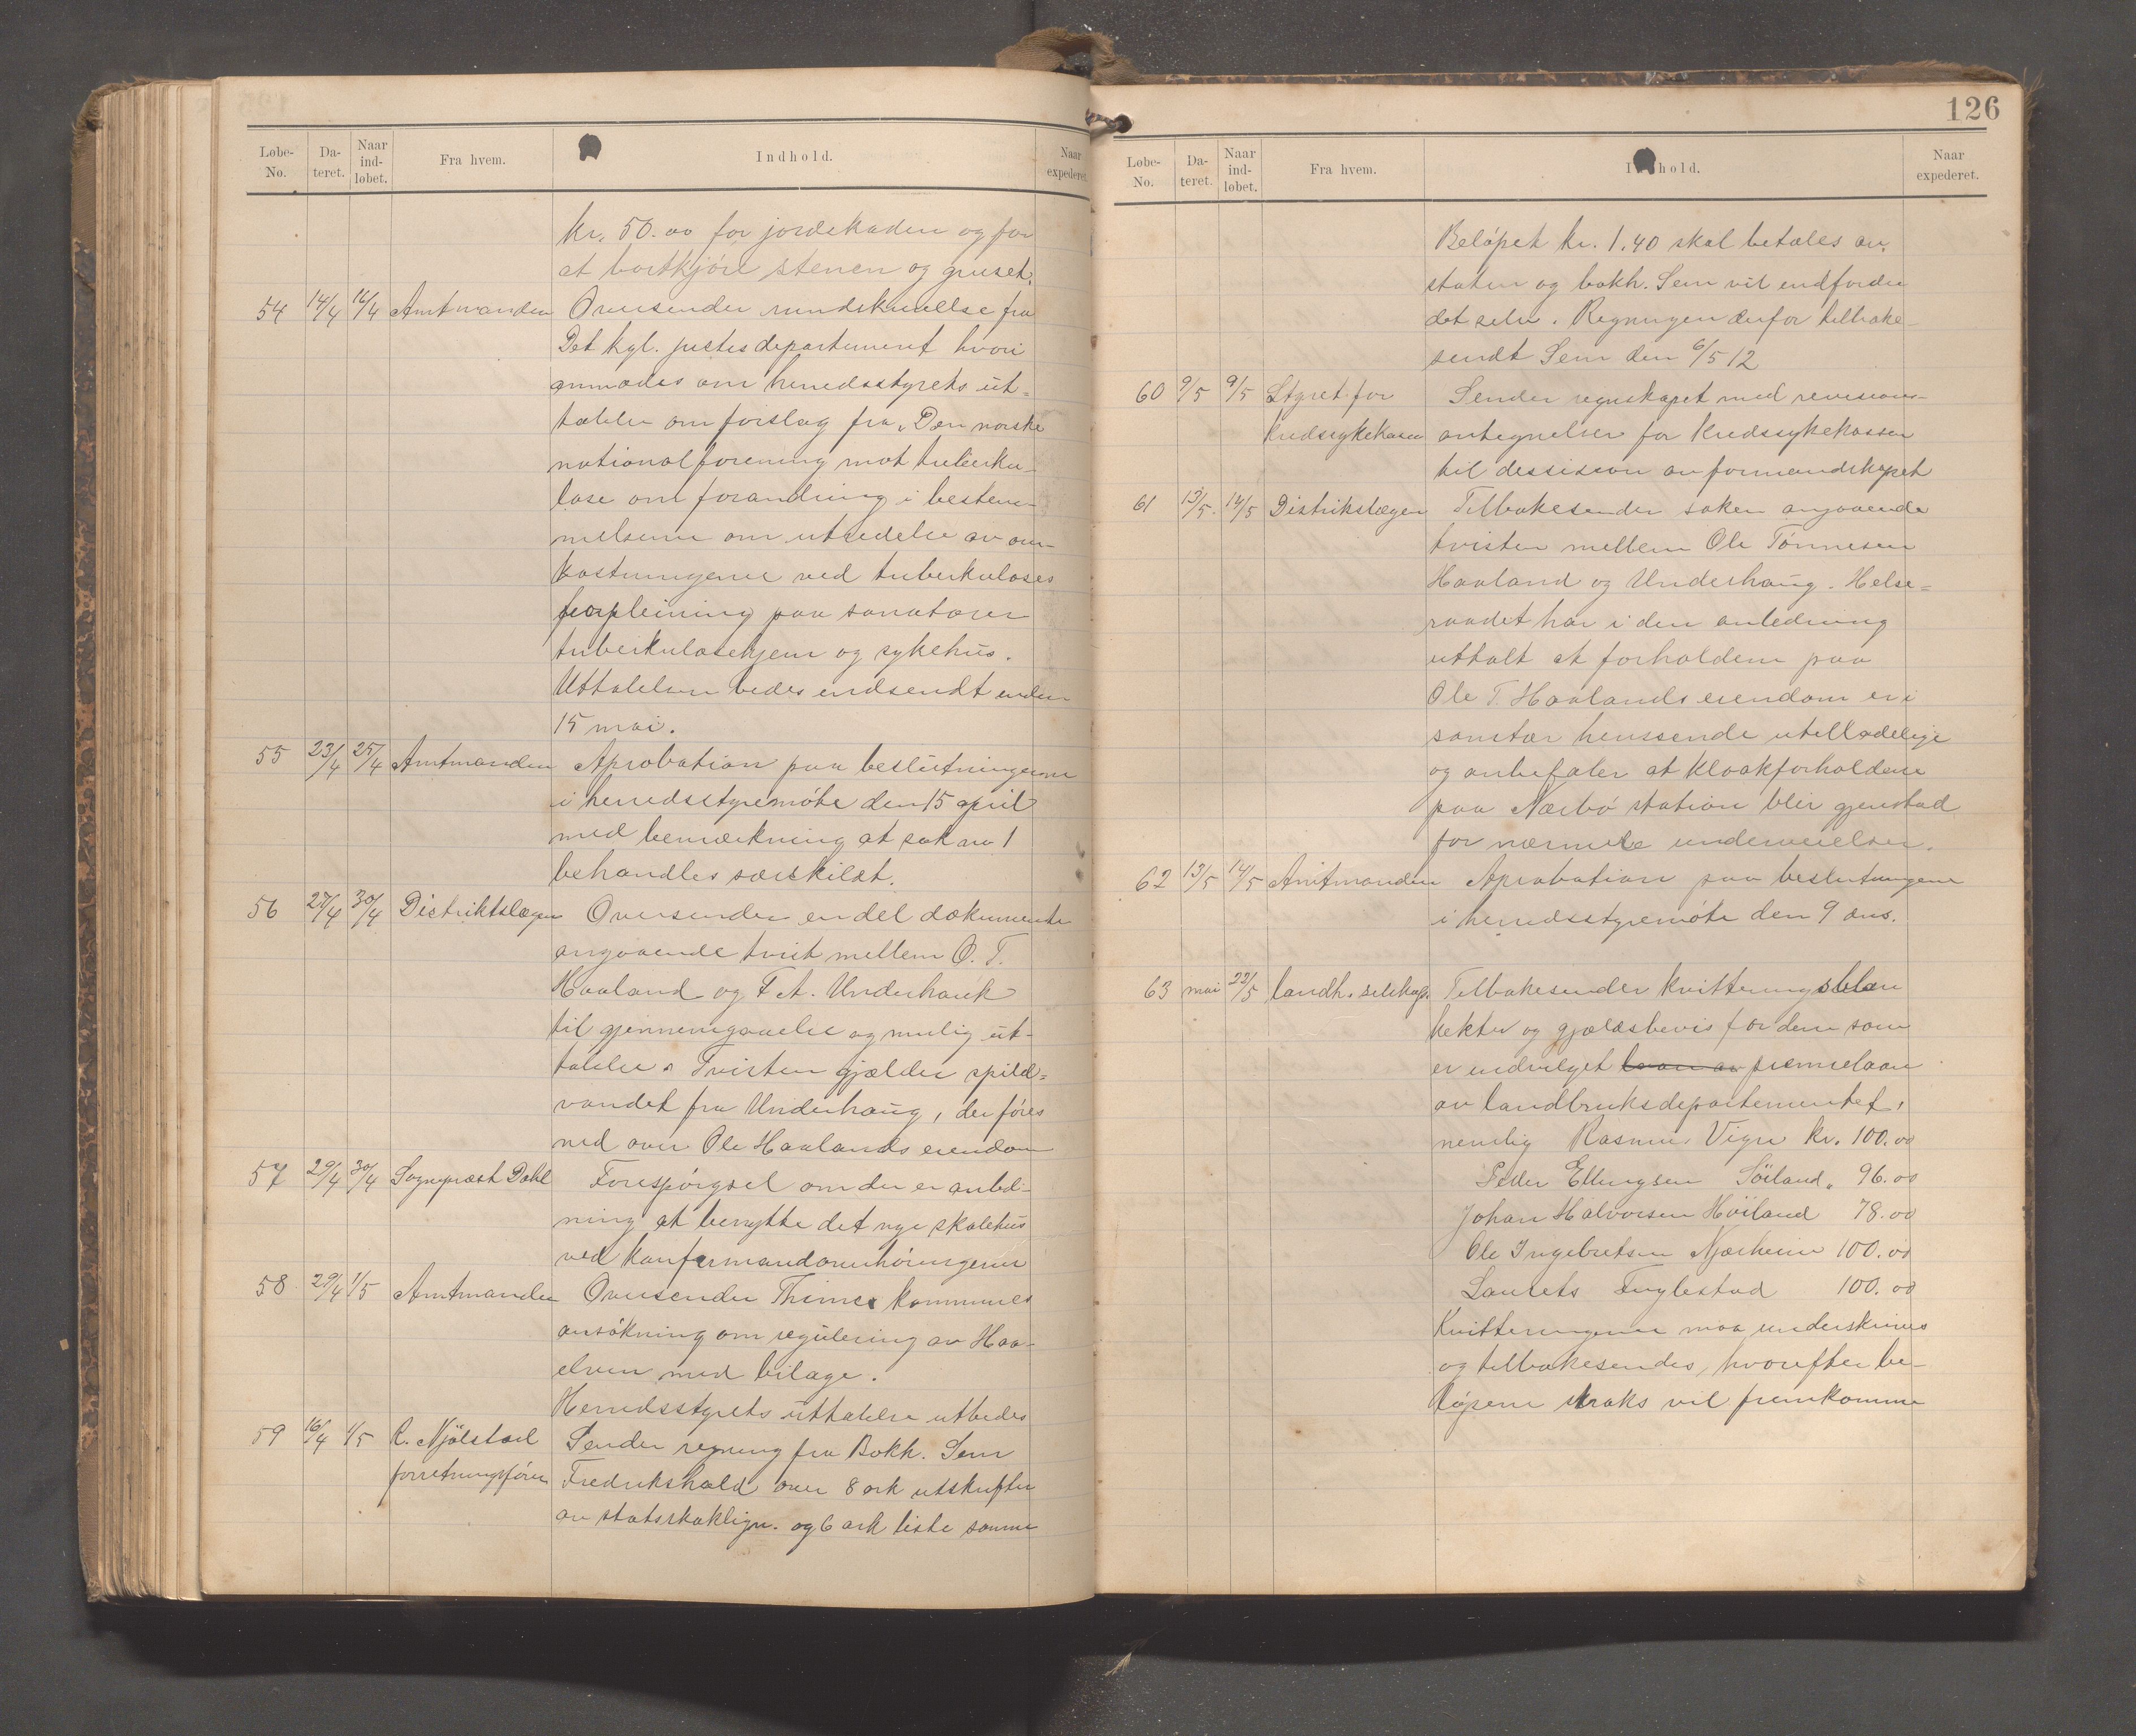 Løbe-No. Da-teret. Naar ind-løbet. Fra hvem. Indhold. Naar expederet.
kr. 50.00 for jordskaden og for
at bortkjøre stenen og gruset.
54 14/4 16/4 Amtmanden Oversender rundskrivelse fra
Det kgl. justisdepartement hvori
anmodes om herredsstyrets ut-
talelse om forslag fra "Den norske
nationalforening mot tuberku-
lose om forandring i bestem-
melserne om utredelse av om-
kostningene ved tuberkuloses
forpleining paa sanatorier
tuberkulosehjem og sykehus.
Uttalelsen bedes indsendt inden
15 mai.
55 23/4 25/4 Amtmanden Aprobation paa beslutningerne
i herredsstyremøte den 15 april
med bemærkning at sak no 1
behandles særskildt.
56 27/4 30/4 Distriktslægen Oversender en del dokumenter
angaaende tvist mellem O. T.
Haaland og F. A. Underhauk
til gjennemgaaelse og mulig ut-
talelse. Tvisten gjælder spild-
vandet fra Underhaug, der føres
ned over Ole Haalands eiendom
57 29/4 30/4 Sogneprest Dahl Forespørgsel om der er anled-
ning at benytte det nye skolehus
ved konfermandoverhøringerne
58 29/4 1/5 Amtmanden Oversender Thime kommunes
ansøkning om regulering av Haa-
elven med bilage.
Herredsstyrets uttalelse utbedes
59 16/4 1/5 R. Njølstad Sender regning fra Bokh. Sem
forretningsfører Fredrikshald over 8 ark utskrifter
av statsskatlign. og 6 ark liste samme
126
Løbe-No. Da-teret. Naar ind-løbet. Fra hvem. Indhold. Naar expederet.
Beløpet kr. 1.40 skal betales av
staten og bokh. Sem vil indfordre
det selv. Regningen derfor tilbake-
sendt Sem den 6/5 12
60 9/5 9/5 Styret for Sender regnskapet med revisions-
kredssykekassen antegnelser for kredssykekassen
til dessision av formandskapet
61 13/5 14/5 Distrikslægen Tilbakesender saken angaaende
tvisten mellem Ole Tønnesen
Haaland og Underhaug. Helse-
raadet har i den anledning
uttalt at forholdene paa
Ole T. Haalands eiendom er i
sanitær henssende utilladelige
og anbefaler at kloakforholdene
paa Nærbø station blir gjenstad
for nærmere underveielser.
62 13/5 14/5 Amtmanden Aprobation paa beslutningene
i herredsstyremøte den 9 ds.
63 mai 22/5 landh. selskap. Tilbakesender kvitteringsblan
ketter og gjældsbevis for dem som
er indvilget laan av præmielaan
av landbruksdepartementet,
nemlig Rasmus Vigre kr. 100.00
Peder Ellingsen Söiland „ 96.00
Johan Halvorsen Höiland 78.00
Ole Ingebretsen Njærheim 100.00
Laurits Fuglestad 100.00
Kvitteringerne maa underskrives
og tilbakesendes, hvorefter be-
løpene straks vil fremkomme